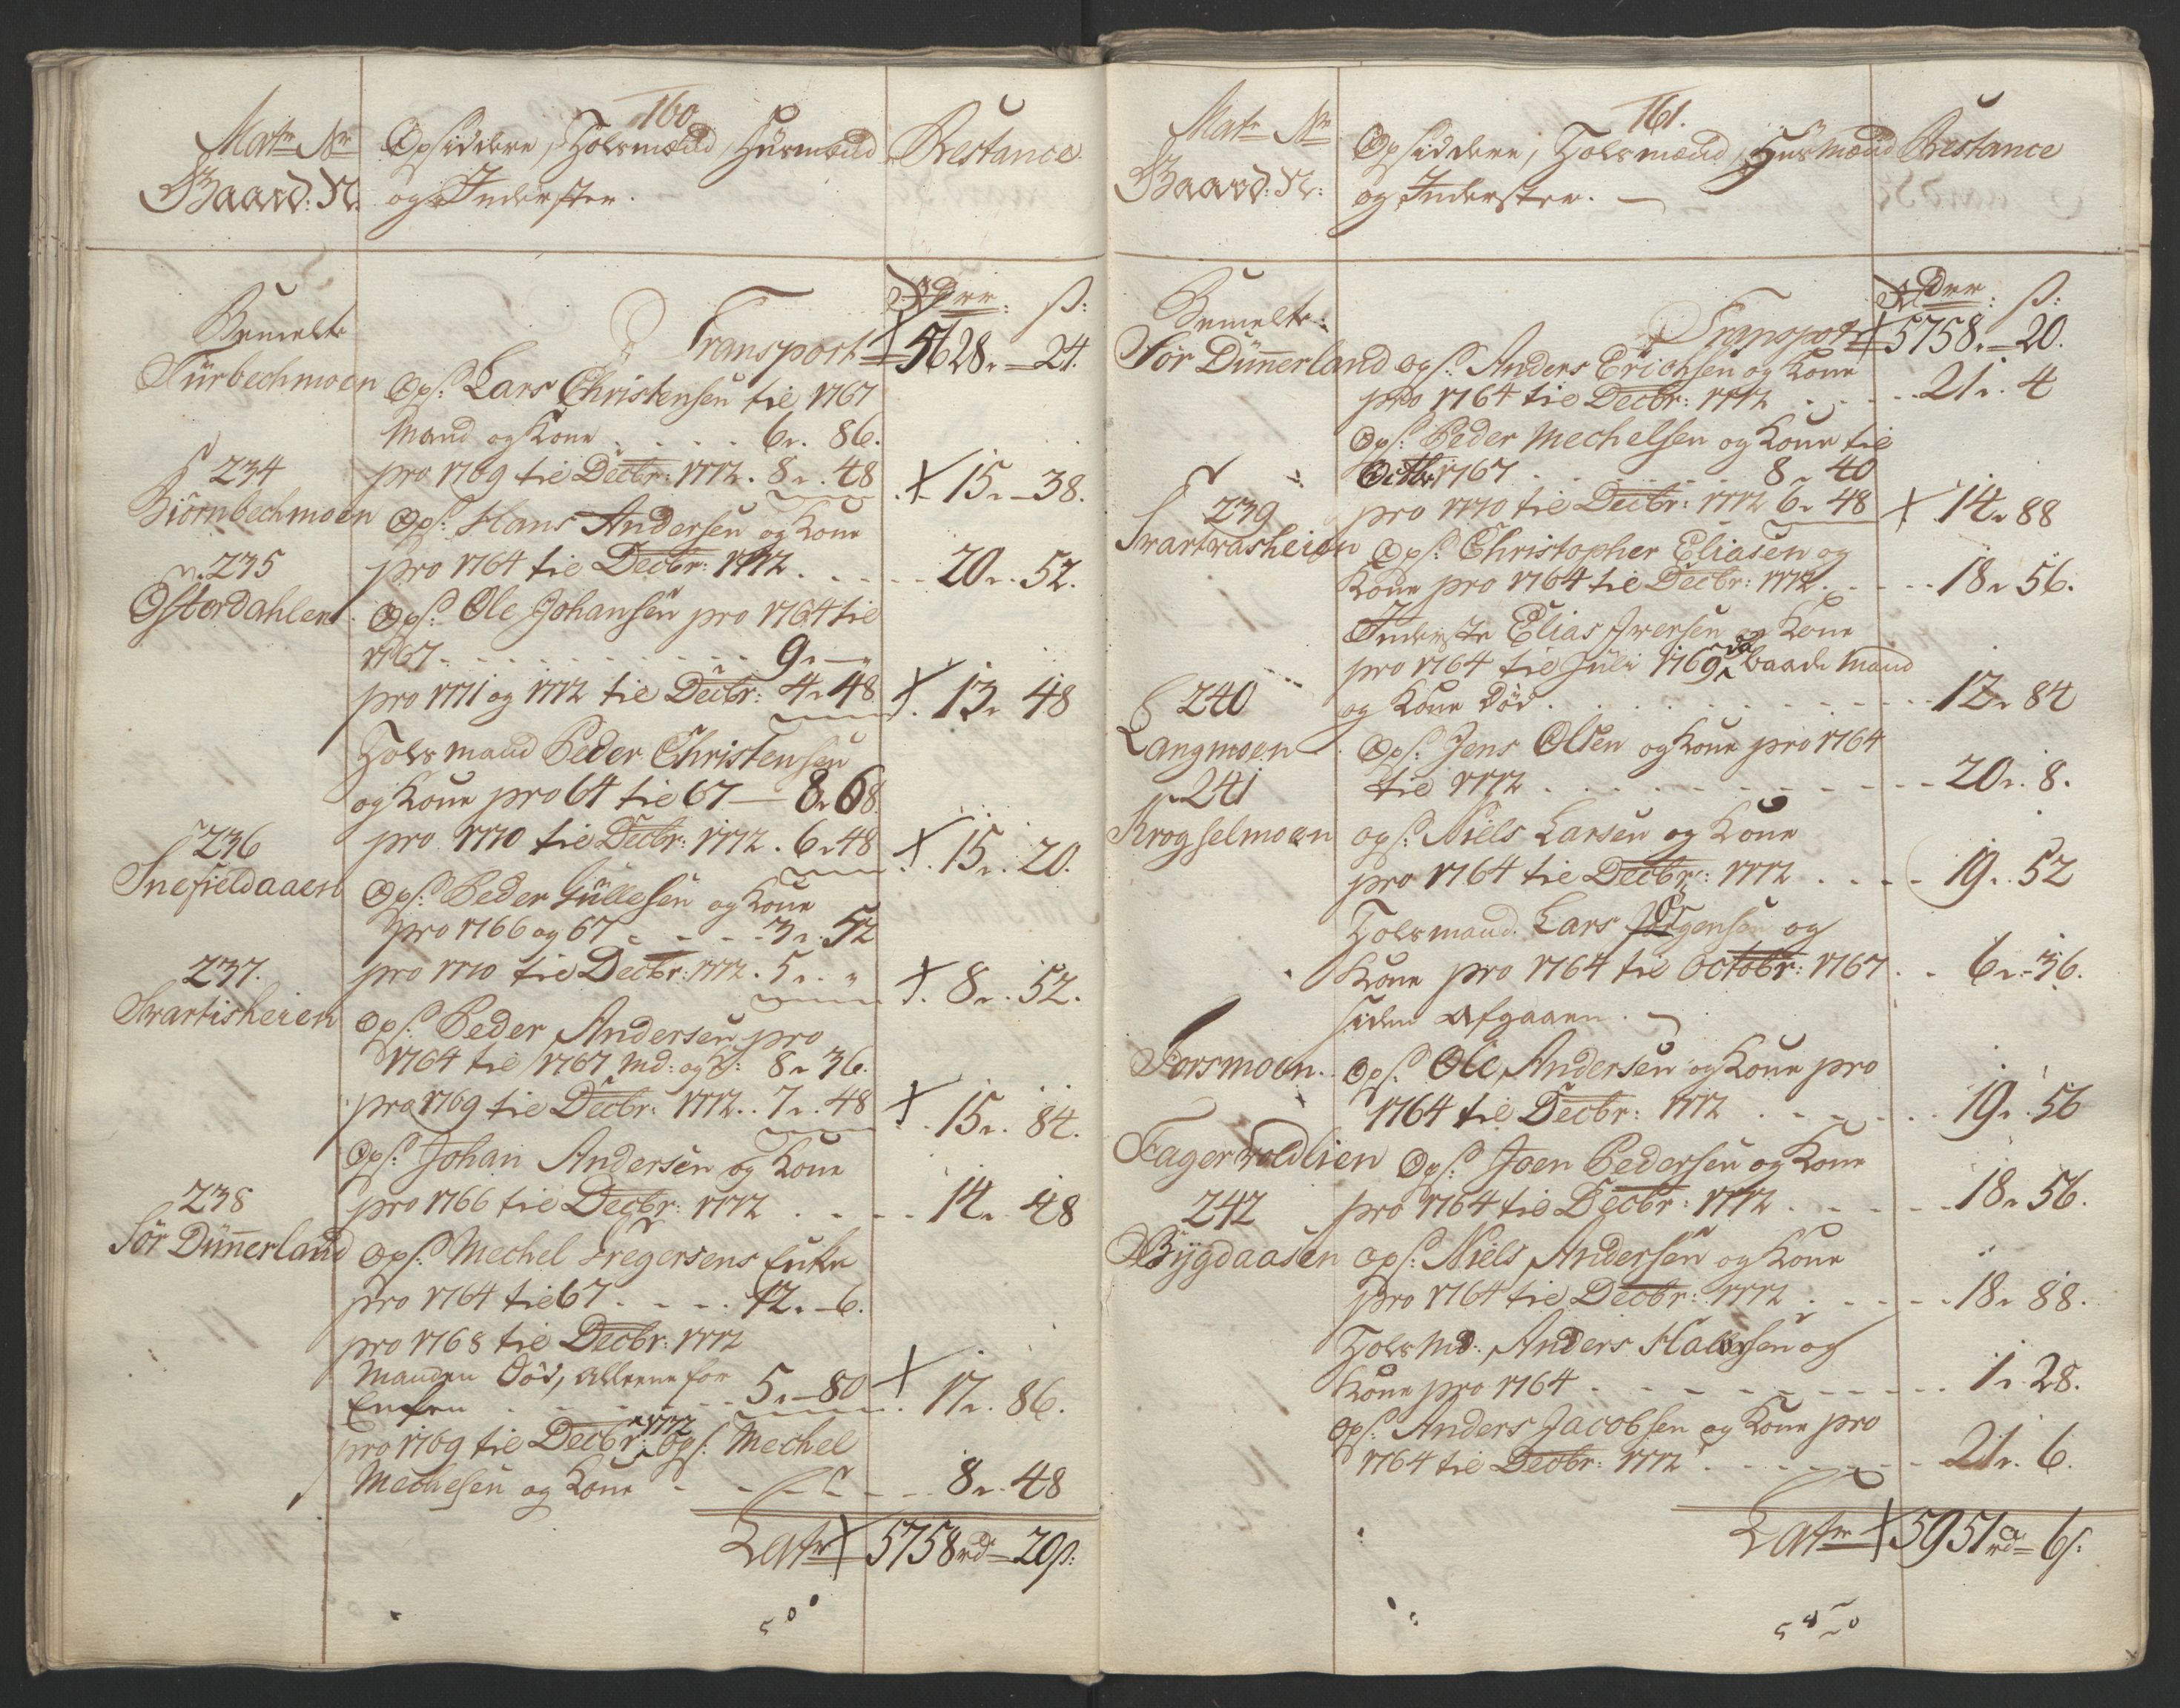 160.
Matr Nr
Gaard: N.
Opsiddere, Folsmænd, Husmænd
og Inderster.
Restance.
Rdlr: ß:
Bemelte
Transport 5628 „ 24.
Türbechmoen
Ops: Lars Christensen til 1767
Mand og Kone . . . . 6 „ 86.
234
pro 1769 til Decbr: 1772 . 8 „ 48 15 „ 38.
Biörnbechmoen
Ops: Hans Andersen og Kone
235
pro 1764 til Decbr: 1772 . . . . 20 „ 52.
Osterdahlen
Ops: Ole Johansen pro 1764 til
1767 . . . . . . . . 9 „ — „
pro 1771 og 1772 til Decbr: 4 „ 48 13 „ 48
Folsmand Peder Christensen
og Kone pro 64 til 67 — 8 „ 68
236
pro 1770 til Decbr: 1772 . 6 „ 48 15 „ 20.
Snefieldaaen
Ops: Peder Gullesen og Kone
pro 1766 og 67 . . . . 3 „ 52
237.
pro 1770 til Decbr: 1772 . 5 „ „ 8 „ 52.
Svartisheien
Ops: Peder Andersen pro
1764 til 1767 Md: og K: 8 „ 36.
pro 1769 til Decbr: 1772 . . 7 „ 48 15 „ 84.
Ops: Johan Andersen og Kone
238
pro 1766 til Decbr: 1772 . . . . 14 „ 48
Sör Dünnerland
Ops: Mechel Gregersens Enke
pro 1764 til 67 . . . . 12 „ 6.
pro 1768 til Decbr: 1772
Manden Död, alleene for
Enken . . . . . 5 „ 80 17 „ 86.
pro 1769 til Decbr: 1772 Ops: Mechel
Mechelsen og Kone . . . . 8 „ 48
Latr 5758 rd 20 ß:
161.
Matr Nr
Gaard: N:
Opsiddere, Folsmænd, Husmænd
og Inderster.
Restance
Rdlr: ß:
Bemelte
Transport 5758 „ 20.
Sör Dünnerland
Ops: Anders Erichsen og Kone
pro 1764 til Decbr: 1772 . . . . 21 „ 4
Ops: Peder Mechelsen og Kone til
Octbr 1767 . . . . . 8 „ 40
239
pro 1770 til Decbr: 1772 6 „ 48 14 „ 88
Svartvasheien
Ops: Christopher Eliasen og
Kone pro 1764 til Decbr: 1772 . . . . 18 „ 56.
Inderste Elias Iversen og Kone
pro 1764 til Juli 1769 da baade Mand
240
og Kone Död . . . . . . . 12 „ 84
Langmoen
Ops: Jens Olsen og Kone pro 1764
241
til 1772 . . . . . . . . 20 „ 8.
Krogselmoen
Ops: Niels Larsen og Kone
pro 1764 til Decbr: 1772 . . . . 19 „ 52
Folsmand Lars Jörgensen og
Kone pro 1764 til Octobr: 1767 . . 6 „ 36.
siden afgaaen.
Forsmoen.
Ops: Ole Andersen og Kone pro
1764 til Decbr: 1772 . . . . . 19 „ 56
Fagervoldlien
Ops: Joen Pedersen og Kone
242
pro 1764 til Decbr: 1772 . . . . 18 „ 56.
Bÿgdaasen
Ops: Niels Andersen og Kone
pro 1764 til Decbr: 1772 . . . . 18 „ 88.
Fols Md: Anders Halvorsen og
Kone pro 1764 . . . . . . . 1 „ 28.
Ops: Anders Jacobsen og Kone pro
1764 til Decbr: 1772 . . . . . . 21 „ 6.
Latr 5951 rd 6 ß: